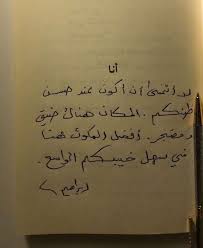 أنا
لا أتمنى أن أكون عند حسن
ظنكم. المكان هناك ضيق
ومضجر. أفضل المكوث هنا
في سهل خيبتكم الواسع.
ابراهيم